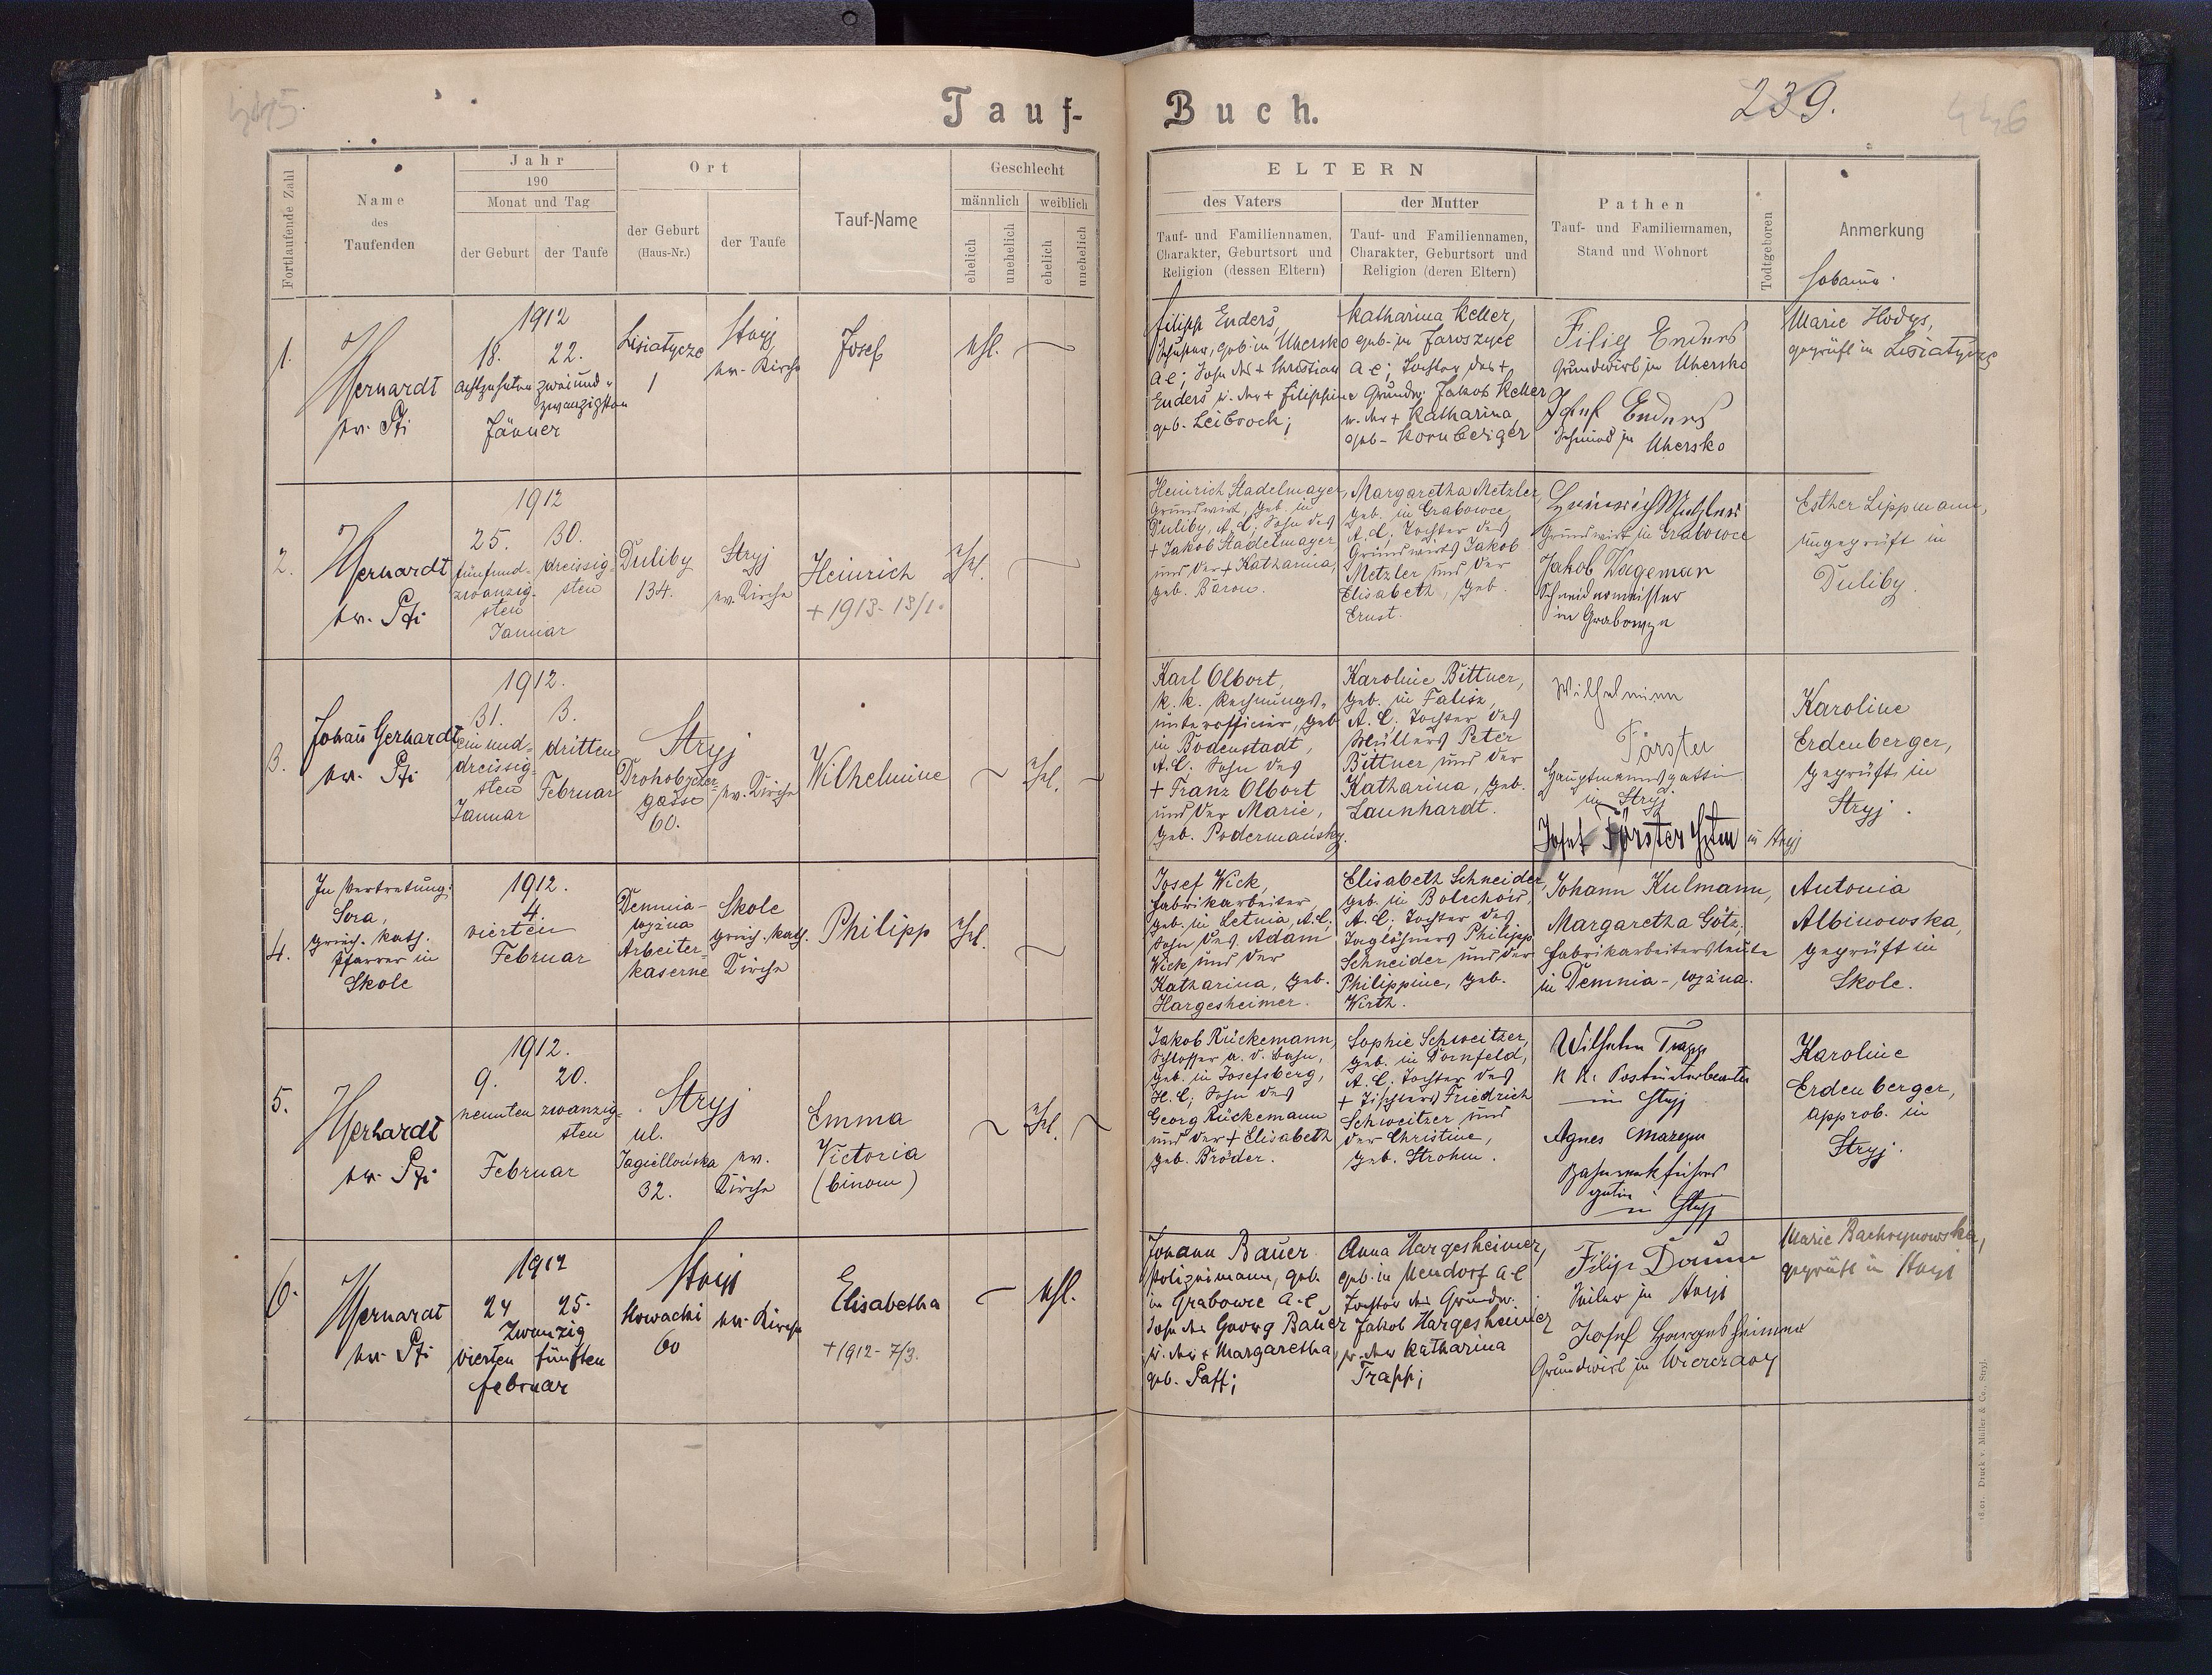 Tauf-Buch.
239.
Fortlaufende Zahl
Name
des
Taufenden
Jahr
190
Monat und Tag
der Geburt
der Taufe
Ort
der Geburt
(Haus-Nr.)
der Taufe
Tauf-Name
Geschlecht
männlich
weiblich
ehelich
unehelich
ehelich
unehelich
ELTERN
des Vaters
Tauf- und Familiennamen,
Charakter, Geburtsort und
Religion (dessen Eltern)
der Mutter
Tauf- und Familiennamen,
Charakter, Geburtsort und
Religion (deren Eltern)
Pathen
Tauf- und Familiennamen,
Stand und Wohnort
Todtgeboren
Anmerkung
1.
1912
18. 22.
achtzehnten zweiund-
zwanzigsten
Jänner
Lisiatycze
1
Stryj
ev. Kirche
Josef
ehl.
Filipp Enders,
Schuster, geb. in Uhersko
a c; Sohn des + Christian
Enders u. der + Filippine
geb. Leibrock;
Katharina Keller,
geb. in Jaroszyce
a c; Tochter des +
Grundw. Jakob Keller
u. der + Katharina,
geb. Kornberiger
Filip Enders
Grundwirt in Uhersko
Josef Enders
Schmied in Uhersko
Marie Hodys,
geprüft in Lisiatycze
2.
1912
25. 30.
fünfund- dreissig-
zwanzig- sten
sten
Januar
Duliby
134.
Stryj
ev. Kirche
Heinrich
+ 1913 - 13/1.
Ehel.
Heinrich Stadelmayer,
Grundwirt, geb. in
Duliby, A. C.; Sohn des
+ Jakob Stadelmayer
und der + Katharina,
geb. Baron.
Margaretha Metzler,
geb. in Grabowce,
A. C.; Tochter des
Grundwirts Jakob
Metzler und der
Elisabeth, geb.
Ernst.
Grundwirt in Grabowce
Jakob Wageman
Schneidermeister
in Grabowce
Esther Lippmann,
ungeprüft in
Duliby.
3.
Johann Gerhardt
ev. Pfr
1912.
31. 3.
ein und- dritten
dreissig-
sten Februar
Januar
Stryj
Drohobyczer-
gasse
60.
ev. Kirche
Wilhelmine
Ehel.
Karl Olbort,
k. k. Rechnungs-
unterofficier, geb.
in Bodenstadt,
A. C. Sohn des
+ Franz Olbort
und der Marie,
geb. Podermańsky.
Karoline Bittner,
geb. in Falisz,
A. C. Tochter des
Müllers Peter
Bittner und der
Katharina, geb.
Launhardt.
Wilhelmine
Förster
Hauptmannsgattin
in Stryj
Josef Förster
in Stryj
Karoline
Erdenberger,
geprüft in
Stryj.
4.
In Vertretung:
Sora,
griech. kath.
Pfarrer in
Skole
1912.
4.
vierten
Februar
Demnia-
wyżna
Arbeiter-
kaserne
Skole
griech. kath.
Kirche
Philipp
Ehel.
Josef Wick,
Fabrikarbeiter,
geb. in Letnia, A. C.
Sohn des Adam
Wick und der
Katharina, geb.
Hargesheimer.
Elisabeth Schneider,
geb. in Bolechów,
A. C. Tochter des
Taglöhners Philipp
Schneider und der
Philippine, geb.
Wirth.
Johann Kulmann,
Margaretha Götz,
Fabrikarbeitersleute
in Demnia-wyżna.
Antonia
Albinowska,
geprüft in
Skole.
5.
Gerhardt
ev. Pfr
1912.
9. 20.
neunten zwanzig-
sten
Februar
Stryj
ul.
Jagiellońska
32.
ev.
Kirche
Emma
Victoria
(binom)
Ehel.
Jakob Rückemann,
Schlosser a. d. Bahn,
geb. in Josefsberg,
H. C; Sohn des
Georg Rückemann
und der + Elisabeth
geb. Bröder.
Sophie Schweitzer,
geb. in Dornfeld,
A. C; Tochter des
+ Tischlers Friedrich
Schweitzer und
der Christine,
geb. Strohm.
Wilhelm Trapp
K. K. Postunterbeamter
in Stryj
Agnes
in Stryj
Karoline
Erdenberger,
approb. in
Stryj.
6.
1912
24 25.
Zwanzig
vierten fünften
februar
Stryj
Slowacki
60
ev. Kirche
Elisabetha
+ 1912 - 7/3.
ehl.
Johann Bauer
Polizeimann, geb.
in Grabowce A-C
Sohn des Georg Bauer
u. der + Margaretha,
geb. Paff;
Anna Hargesheimer,
geb. in Neudorf A-C
Tochter des Grundw.
Jakob Hargesheimer
u. der Katharina
Trapp;
Filip Daum
Seiler in Stryj
Josef Hargesheimer
Grundwirt in Wierczany
Marie Bachrynowska,
geprüft in Stryj
18.01. Druck v. Müller & Co., Stryj.